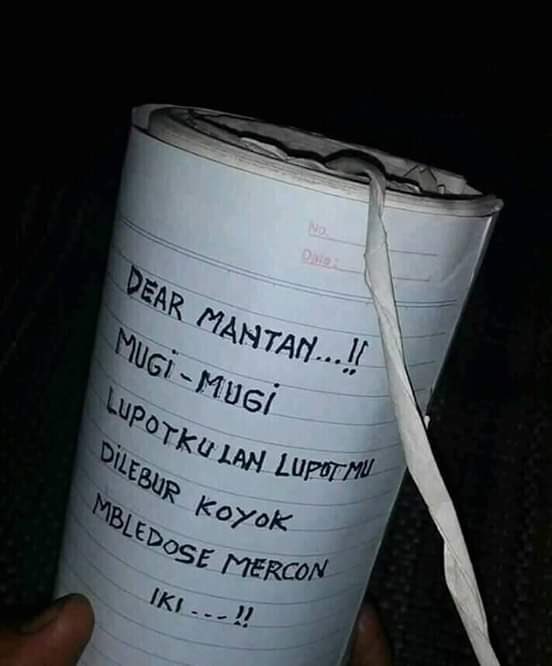 No.
Date:
DEAR MANTAN...!!
MUGI-MUGI
LUPOTKU LAN LUPOTMU
DILEBUR KOYOK
MBLEDOSE MERCON
IKI ---!!